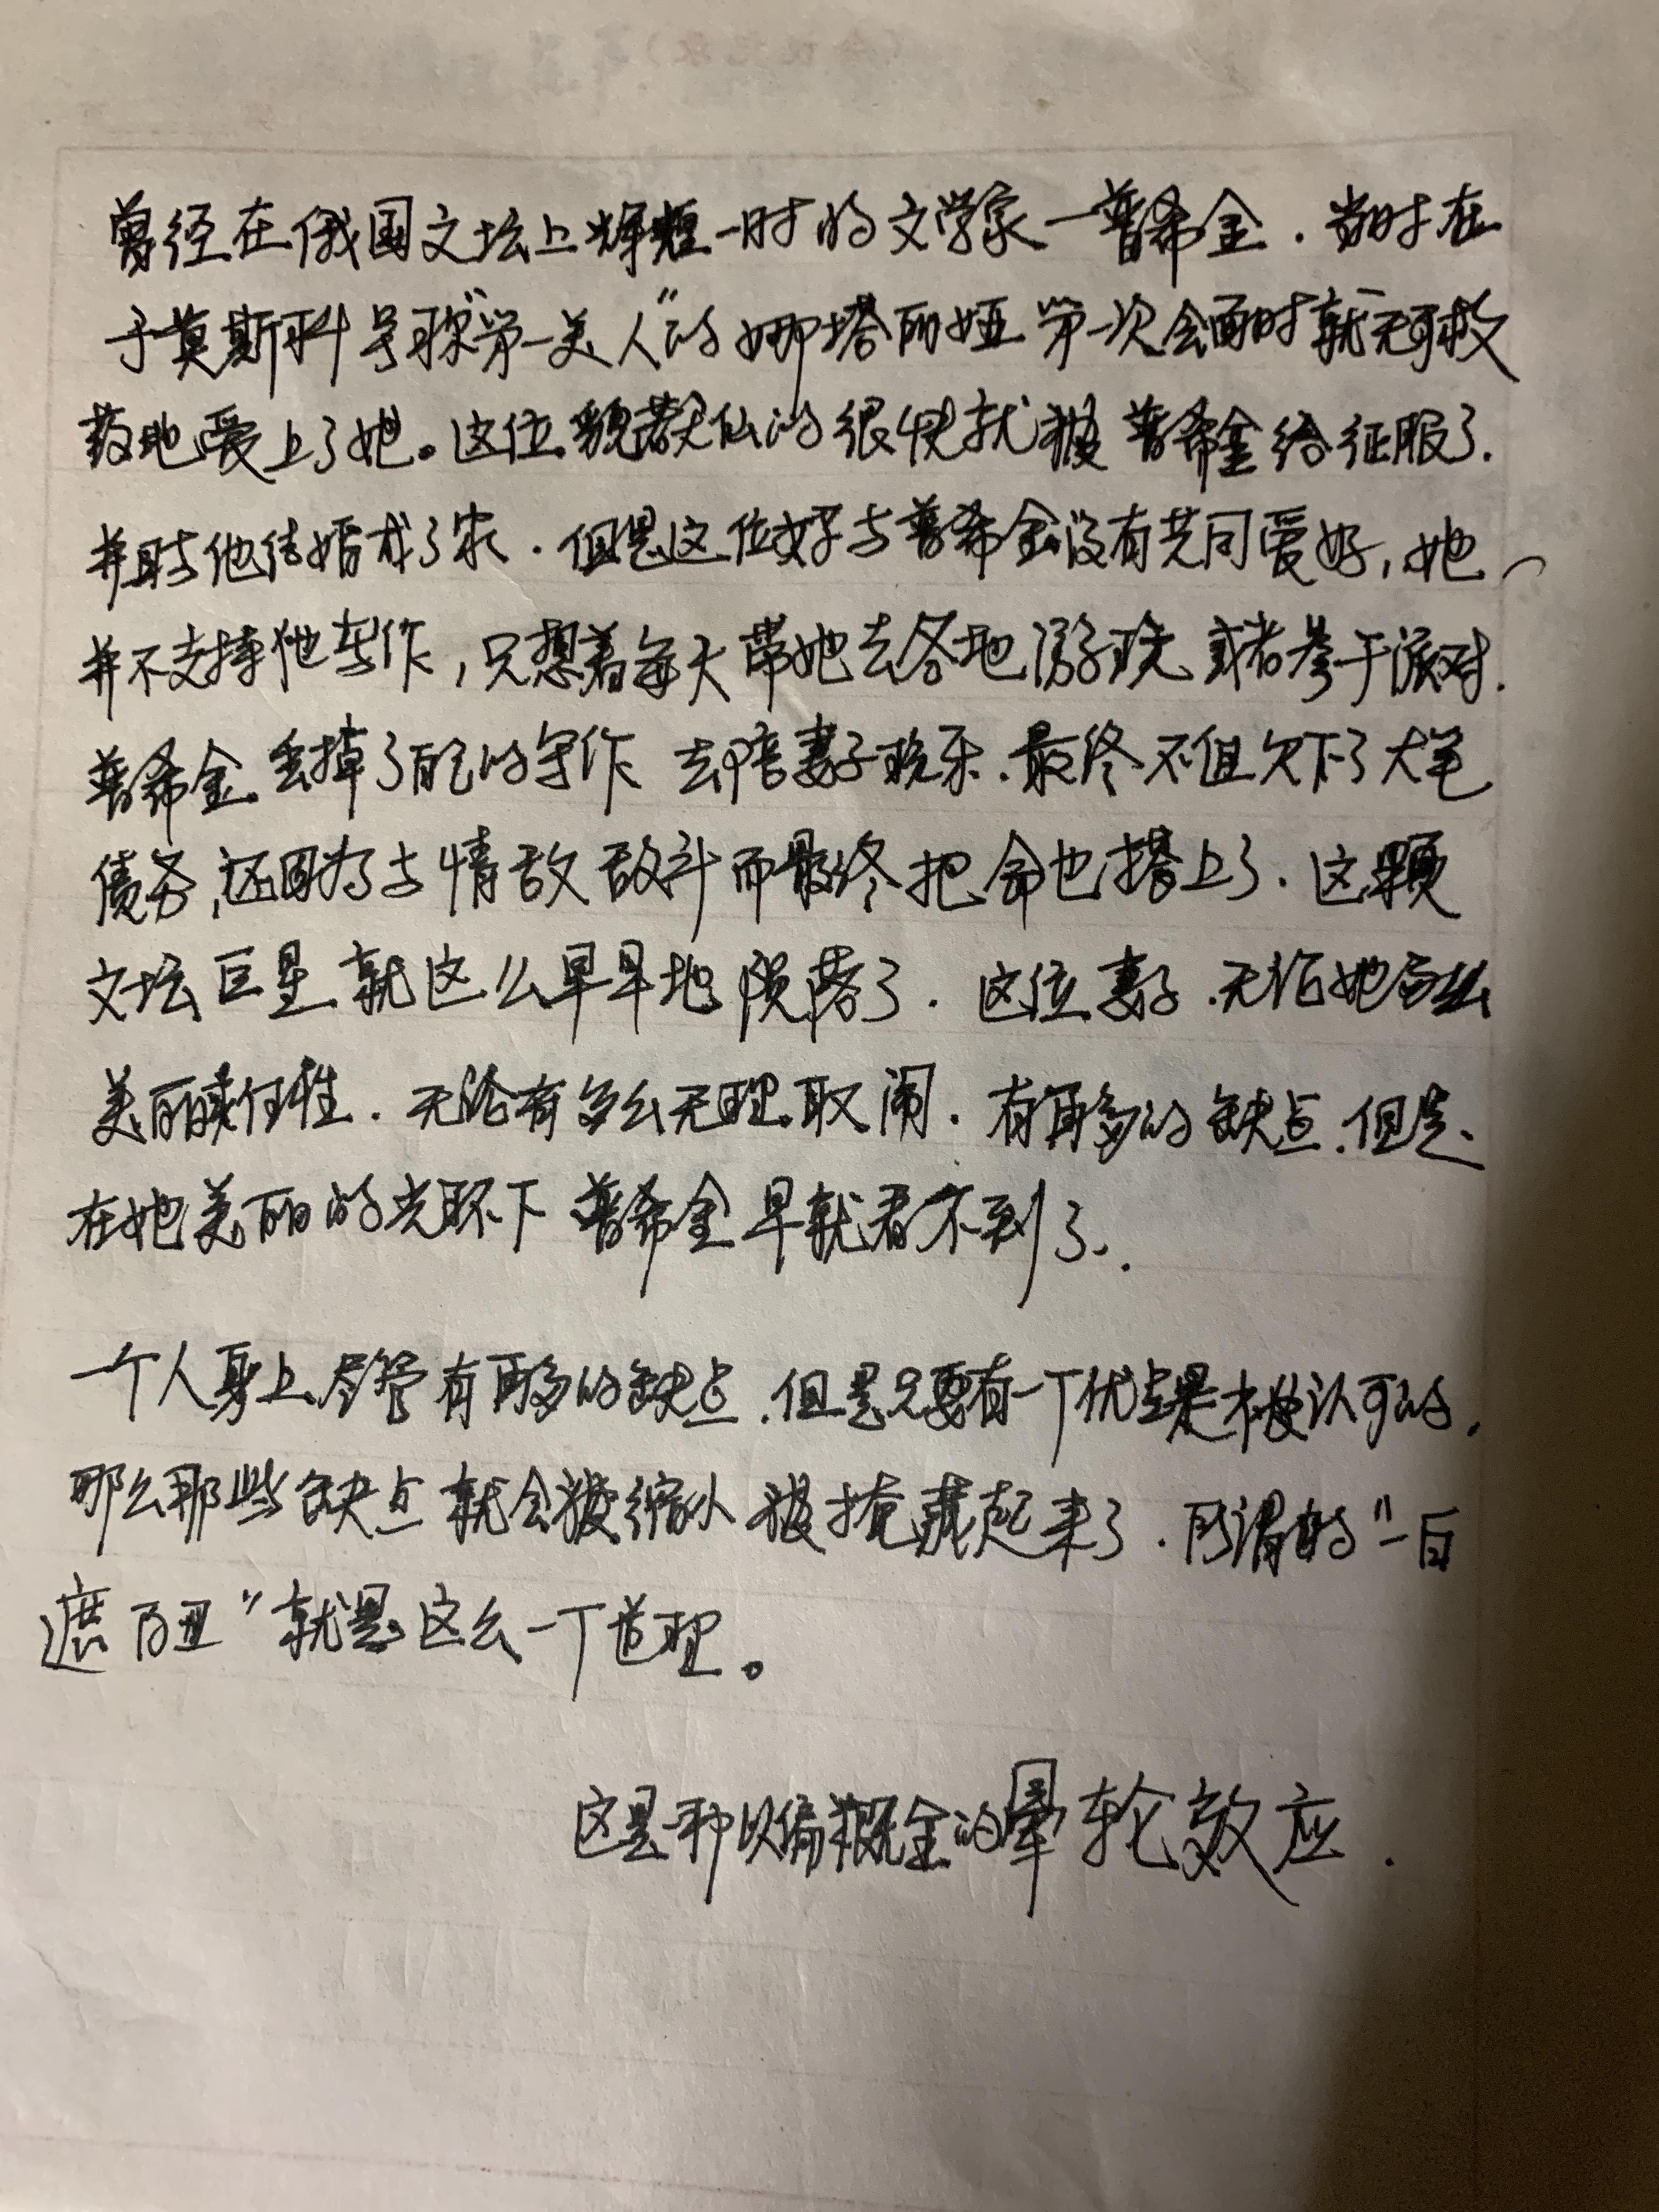 曾经在俄国文坛上辉煌一时的文学家一普希金.当时在
于莫斯科号称"第一美人"的娜塔丽娅第一次会面时就无可救
药地爱上了她。这位貌若天仙的很快就被普希金给征服了.
并且与他结婚成了家.但是这位妻子与普希金没有共同爱好,她
并不支持他写作,只想着每天带她去各地游玩或者参于派对.
普希金丢掉了自己的写作去陪妻子玩乐.最终不但欠下了大笔
债务,还因为与情敌敌斗而最终把命也搭上了.这颗
文坛巨星就这么早早地陨落了.这位妻子.无论她多么
美丽任性.无论有多么无理取闹.有再多的缺点.但是.
在她美丽的光环下普希金早就看不到了.
一个人身上尽管有再多的缺点.但是只要有一个优点是被认可的.
那么那些缺点就会被缩小被掩藏起来了.所谓的"一白
遮百丑"就是这么一个道理。
这是一种以偏概全的晕轮效应.